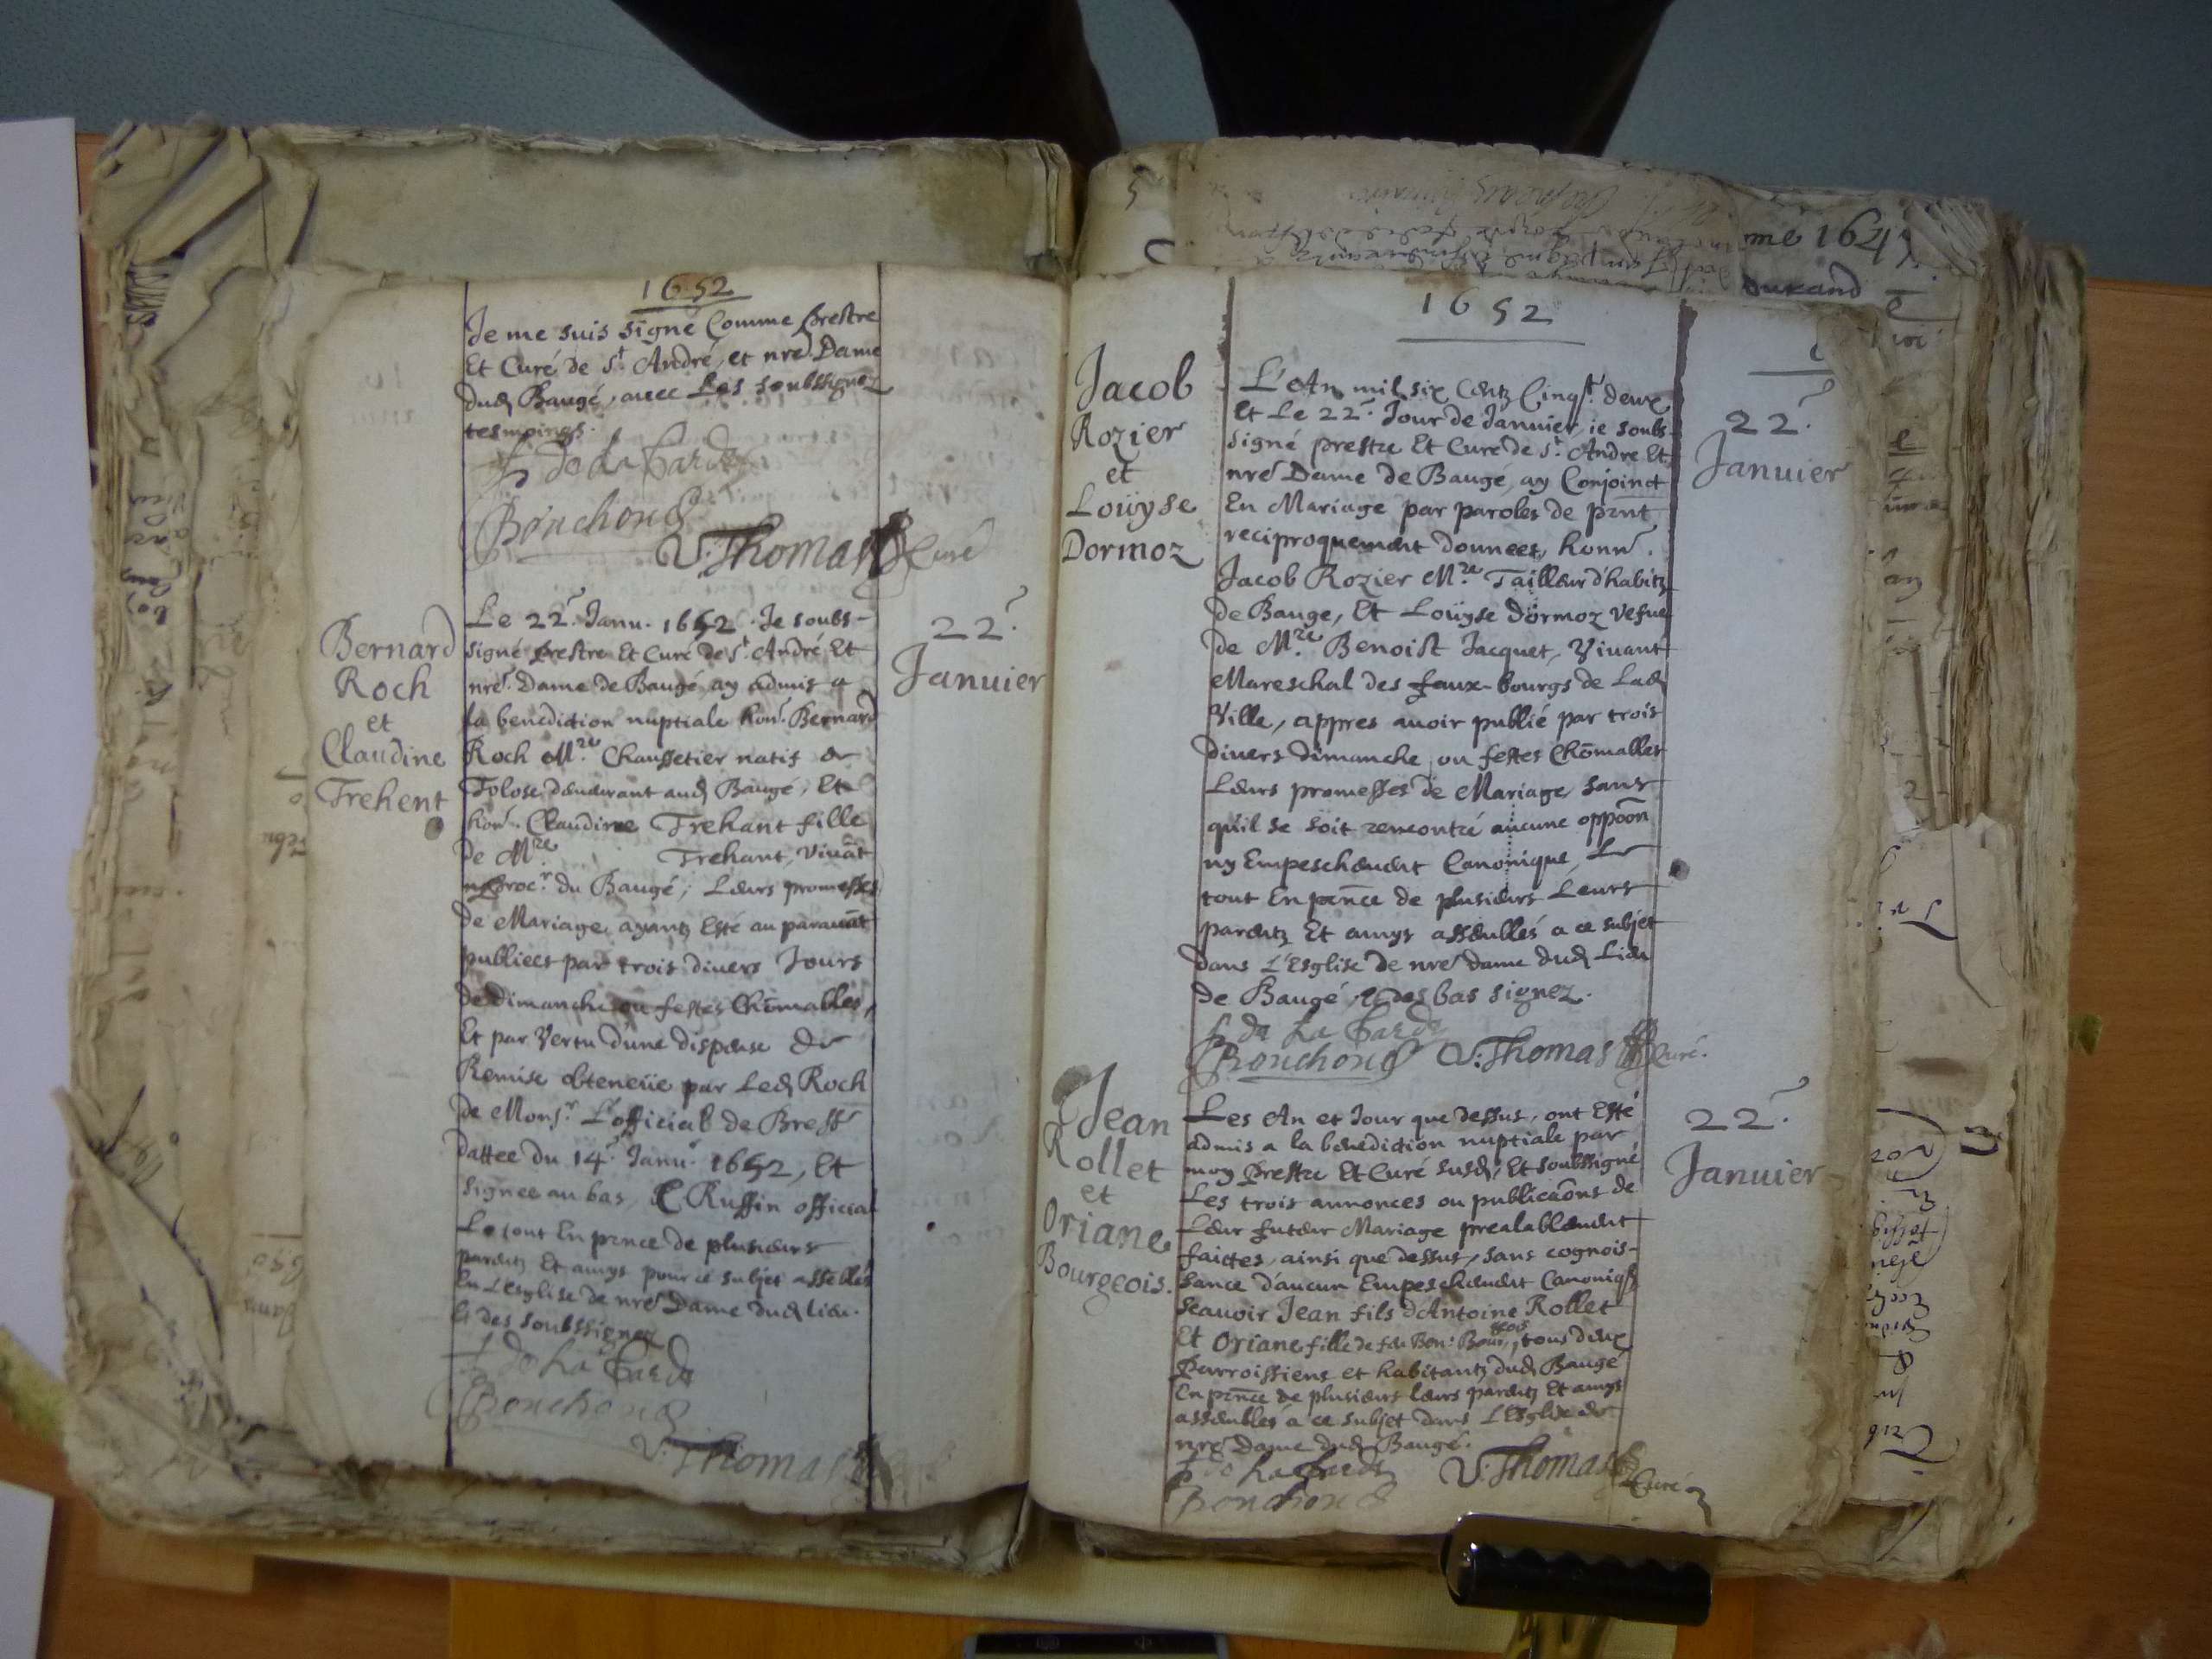 1652
Je me suis signé Comme prestre
Et Curé de St. André, et nre. Dame
dud. Baugé, auec Les soubsignez
tesmoings.
De La Garde
Bonchond
V: Thomas Curé
Bernard
Roch
et
Claudine
Trehent
Le 22e. Janu. 1652. Je soubs-
signé prestre Et Curé de St. André Et
nre. Dame de Baugé ay admis a
la benediction nuptiale hon. Bernard
Roch Mre. Chaussetier natif de
Tolose, demeurant aud. Baugé, Et
hon. Claudine Trehant fille
de Mre. Trehant, viuāt
procr. du Baugé, Leurs promesses
de Mariage ayantz Esté au parauāt
publiees par trois diuers Jours
de dimanche ou festes Chōmables,
Et par Vertu d'une dispense de
Remise obteneüe par Led. Roch
de Monsr. L'official de Bress
dattee du 14e. Janu. 1652, Et
signee au bas, C Ruffin official
Le tout En pnce de plusieurs
parentz Et amys pour ce subjet assēblés
En L'esglise de nre Dame dud. lieu.
Et des soubssignez
De La Garde
Bonchond
V: Thomas
22e.
Januier
1652
Jacob
Rozier
et
Loüyse
Dormoz
L'An mil six Centz Cinqt. deux
Et Le 22e. Jour de Januier, ie soubs-
signé prestre Et Curé de St. Andre Et
nre Dame de Baugé, ay Conjoinct
En Mariage par paroles de prnt
reciproquement donnees, honn.
Jacob Rozier Mre. Tailleur d'habitz
de Bauge, Et Loüyse dormoz vefue
de Mre. Benoist Jacquet, Viuant
Mareschal des faux-bourgs de Lad.
Ville, appres auoir publié par trois
diuers dimanche ou festes Chōmables
Leurs promesses de Mariage, sans
qu'il se soit rencontré aucune oppoōn
ny Empeschement Canonique, Le
tout En pnce de plusieurs Leurs
parentz Et amys assemblés a ce subjet
dans L'Esglise de nre dame dud. Lieu
de Baugé, Et des bas signez.
De La Garde
Bonchond V: Thomas Curé.
22e.
Januier
Jean
Rollet
et
Oriane
Bourgeois.
Les An et Jour que dessus, ont Esté
admis a la benediction nuptiale par
moy prestre Et Curé susd. Et soubssigné
Les trois annonces ou publicaōns de
Leur futeur Mariage prealablement
faictes, ainsi que dessus, sans cognois-
sance d'aucun Empeschement Canoniq.
scauoir Jean fils d'Antoine Rollet
Et Oriane fille de feu Ben: Bourgeois, tous deux
Parroissiens et habitantz dud. Baugé
En pnce de plusieurs leurs parentz Et amys
assemblés a ce subjet dans L'Esglise de
nre Dame dud. Baugé.
De La Garde V: Thomas Curé
Bonchond
22e.
Januier
me 164
Durand